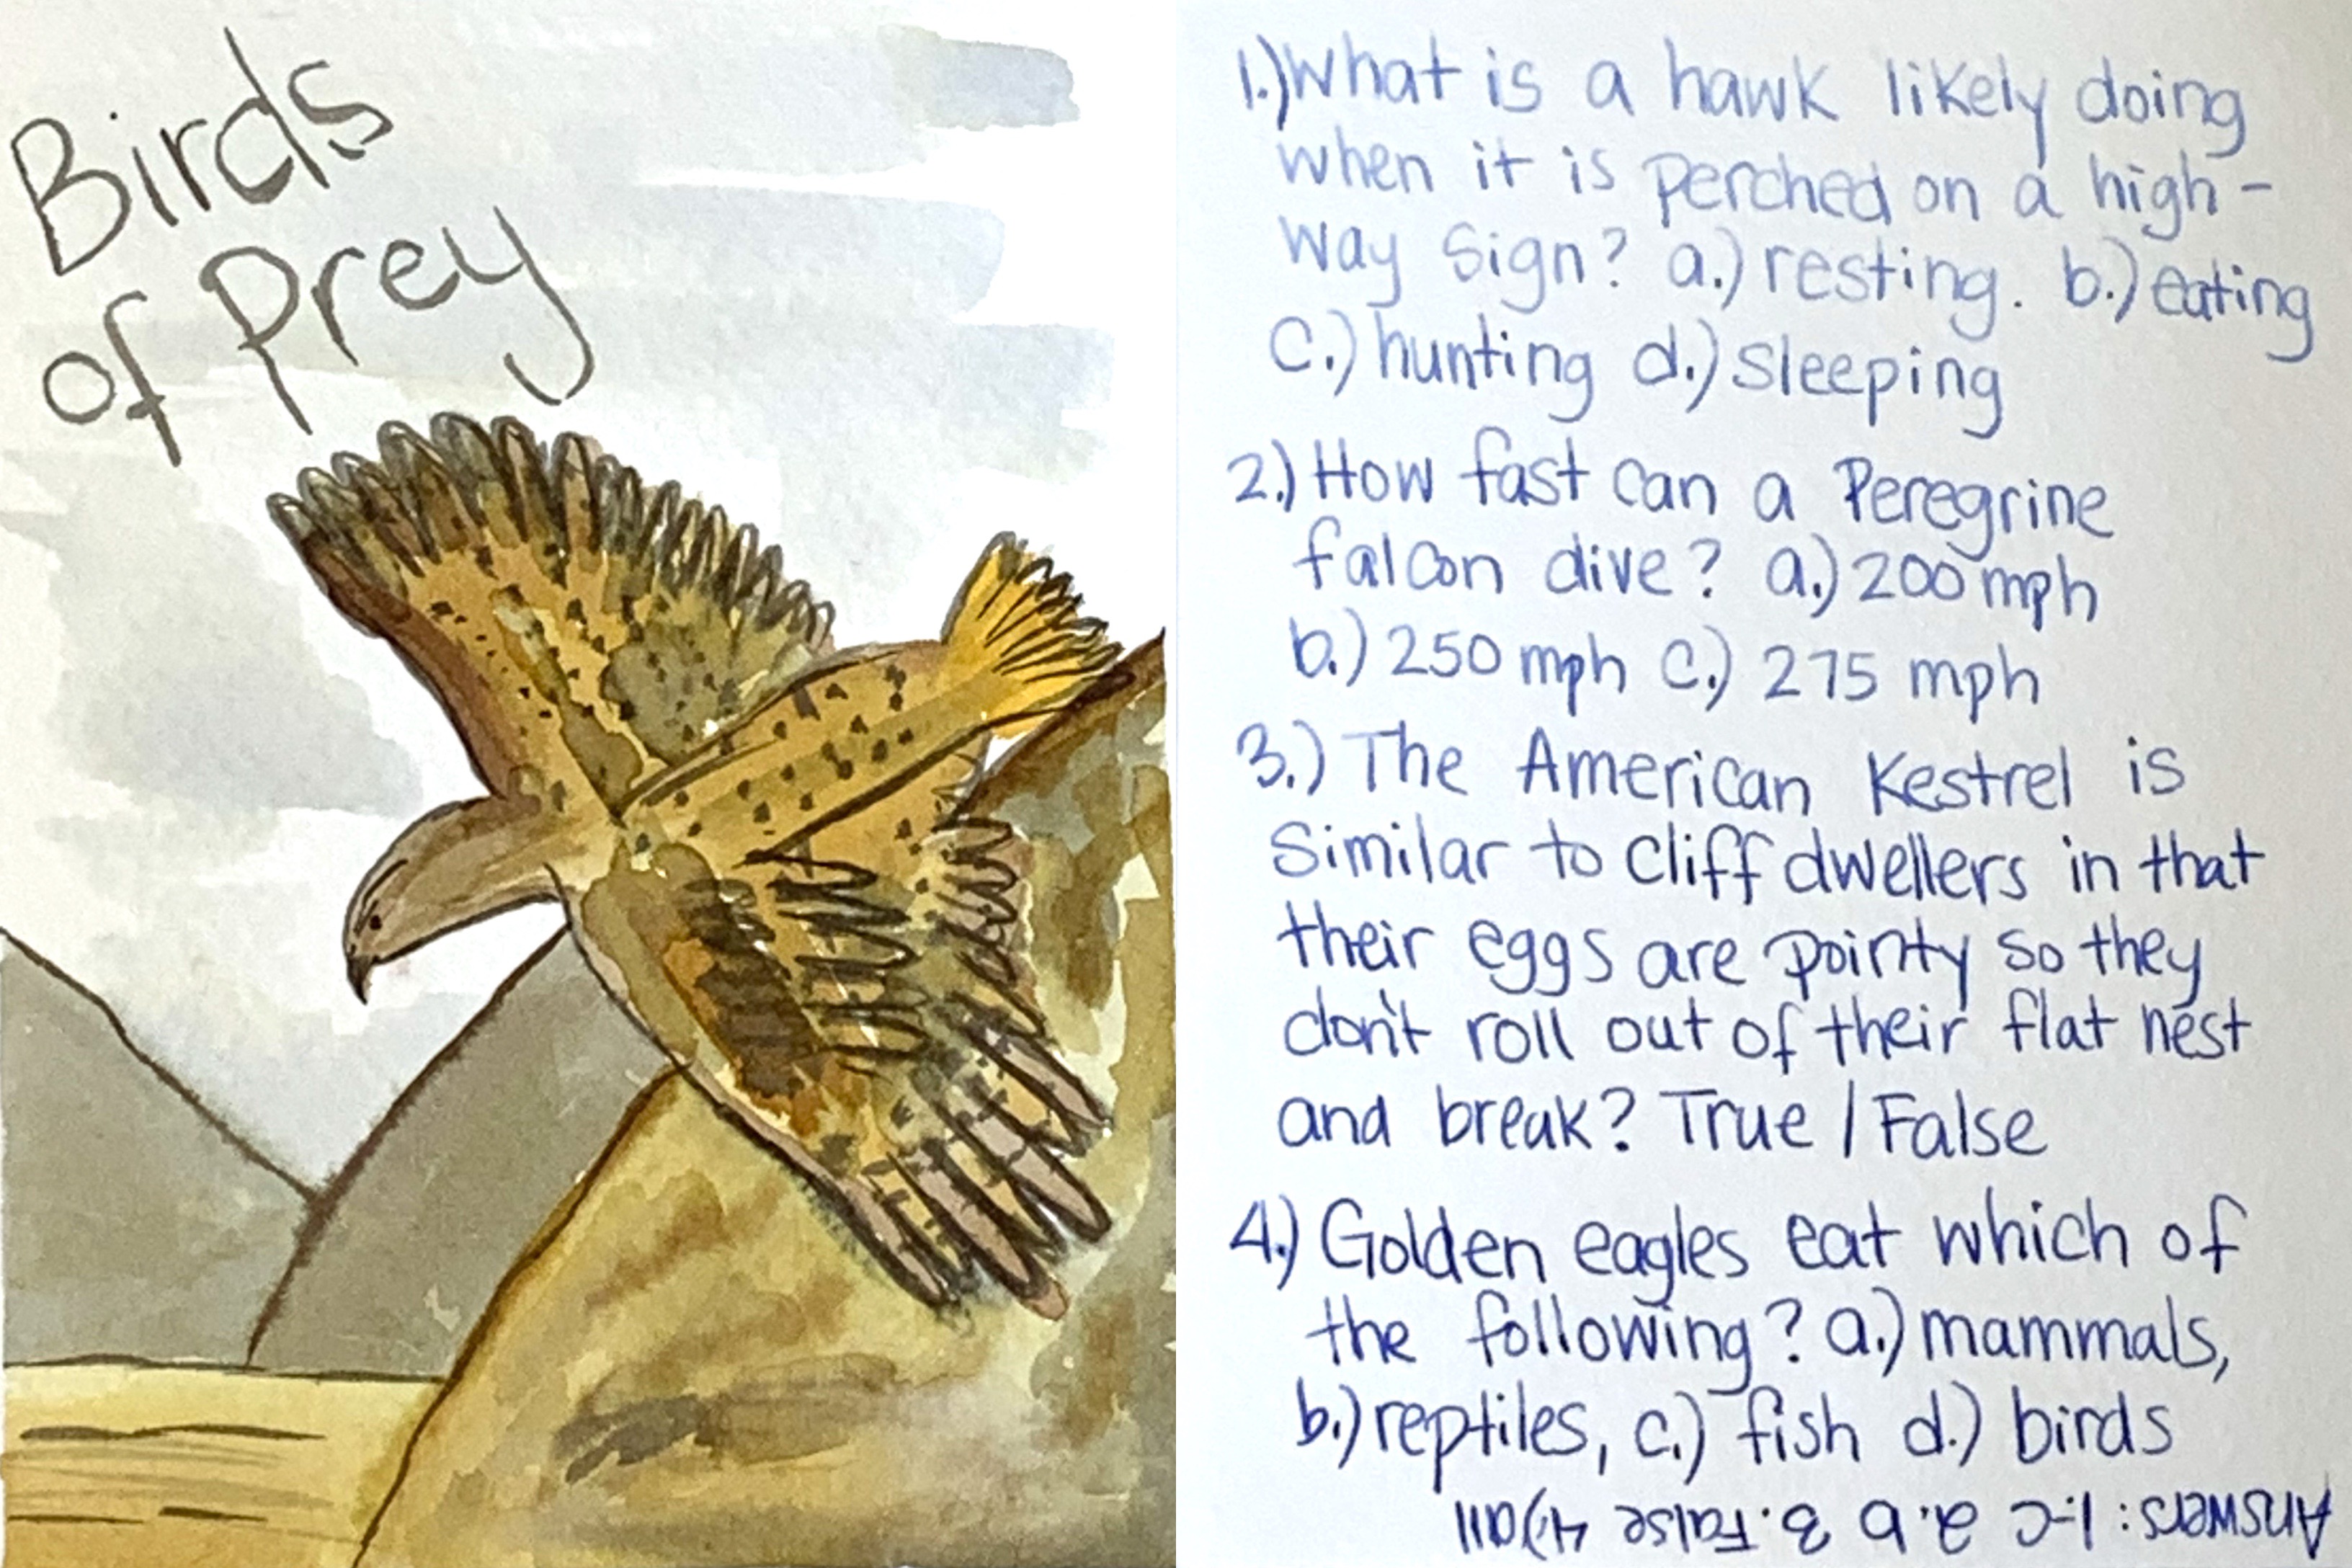 Birds
of Prey
1.) What is a hawk likely doing
when it is perched on a high-
way sign? a.) resting. b.) eating
c.) hunting d.) sleeping
2.) How fast can a Peregrine
falcon dive? a.) 200 mph
b.) 250 mph c.) 275 mph
3.) The American Kestrel is
similar to cliff dwellers in that
their eggs are pointy so they
don't roll out of their flat nest
and break? True / False
4.) Golden eagles eat which of
the following? a.) mammals,
b.) reptiles, c.) fish d.) birds
Answers: 1-c 2. b 3. False 4.) all